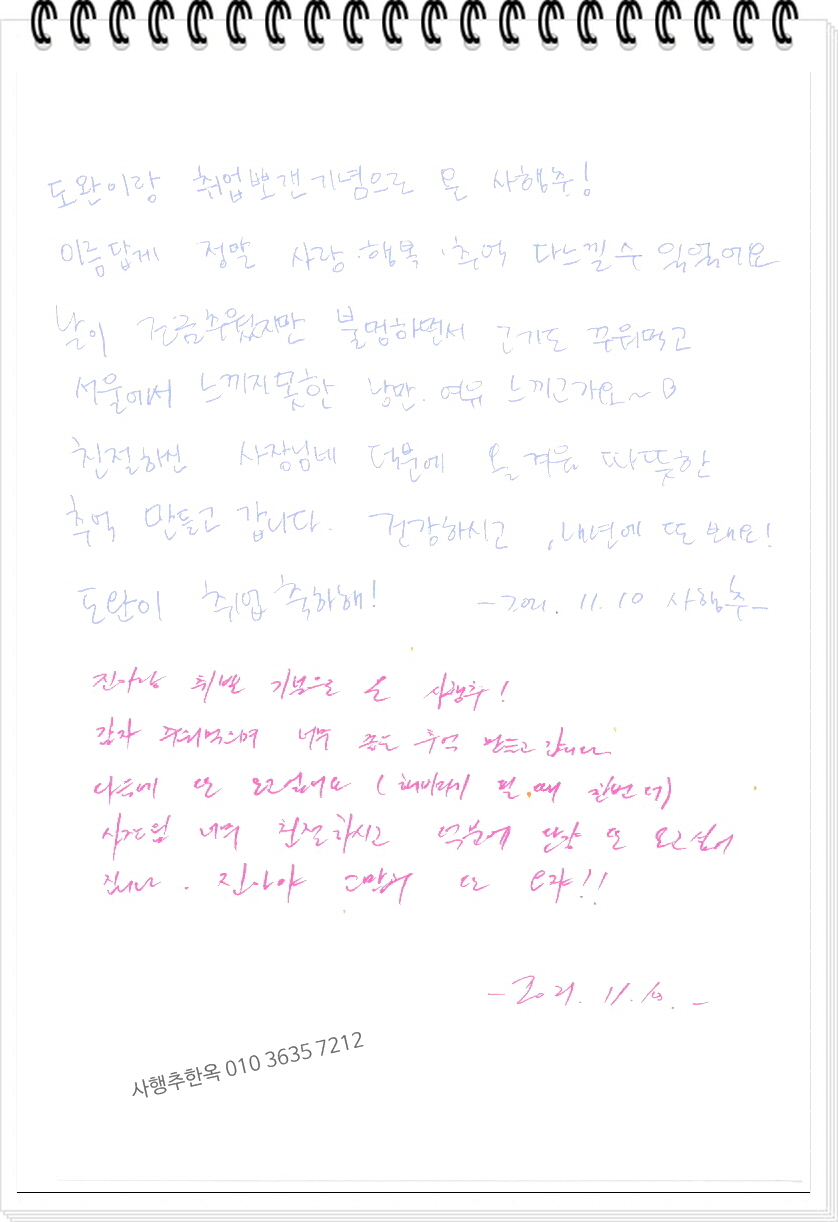 도완이랑 취업뽀갠기념으로 온 사행추!
이름답게 정말 사랑·행복·추억 다느낄수 있있어요
날이 조금추웠지만 불멍하면서 고기도 꾸워먹고
서울에서 느끼지못한 낭만·여유 느끼고가요~
친절하신 사장님네 덕분에 올겨울 따뜻한
추억 만들고 갑니다. 건강하시고, 내년에 또 봬요!
도완이 취업 축하해! -2021. 11. 10 사행추-
취뽀 기념으로 온 사행추!
감자 구워먹으며 너무 좋은 추억 만들고 갑니다
다음에 또 오고싶어요 (해바라기 필 때 한번 더)
너무 친절하시고 덕분에 또 오고 싶어
집니다. 또 오자!!
-2021. 11. 10. -
사행추한옥 010 3635 7212